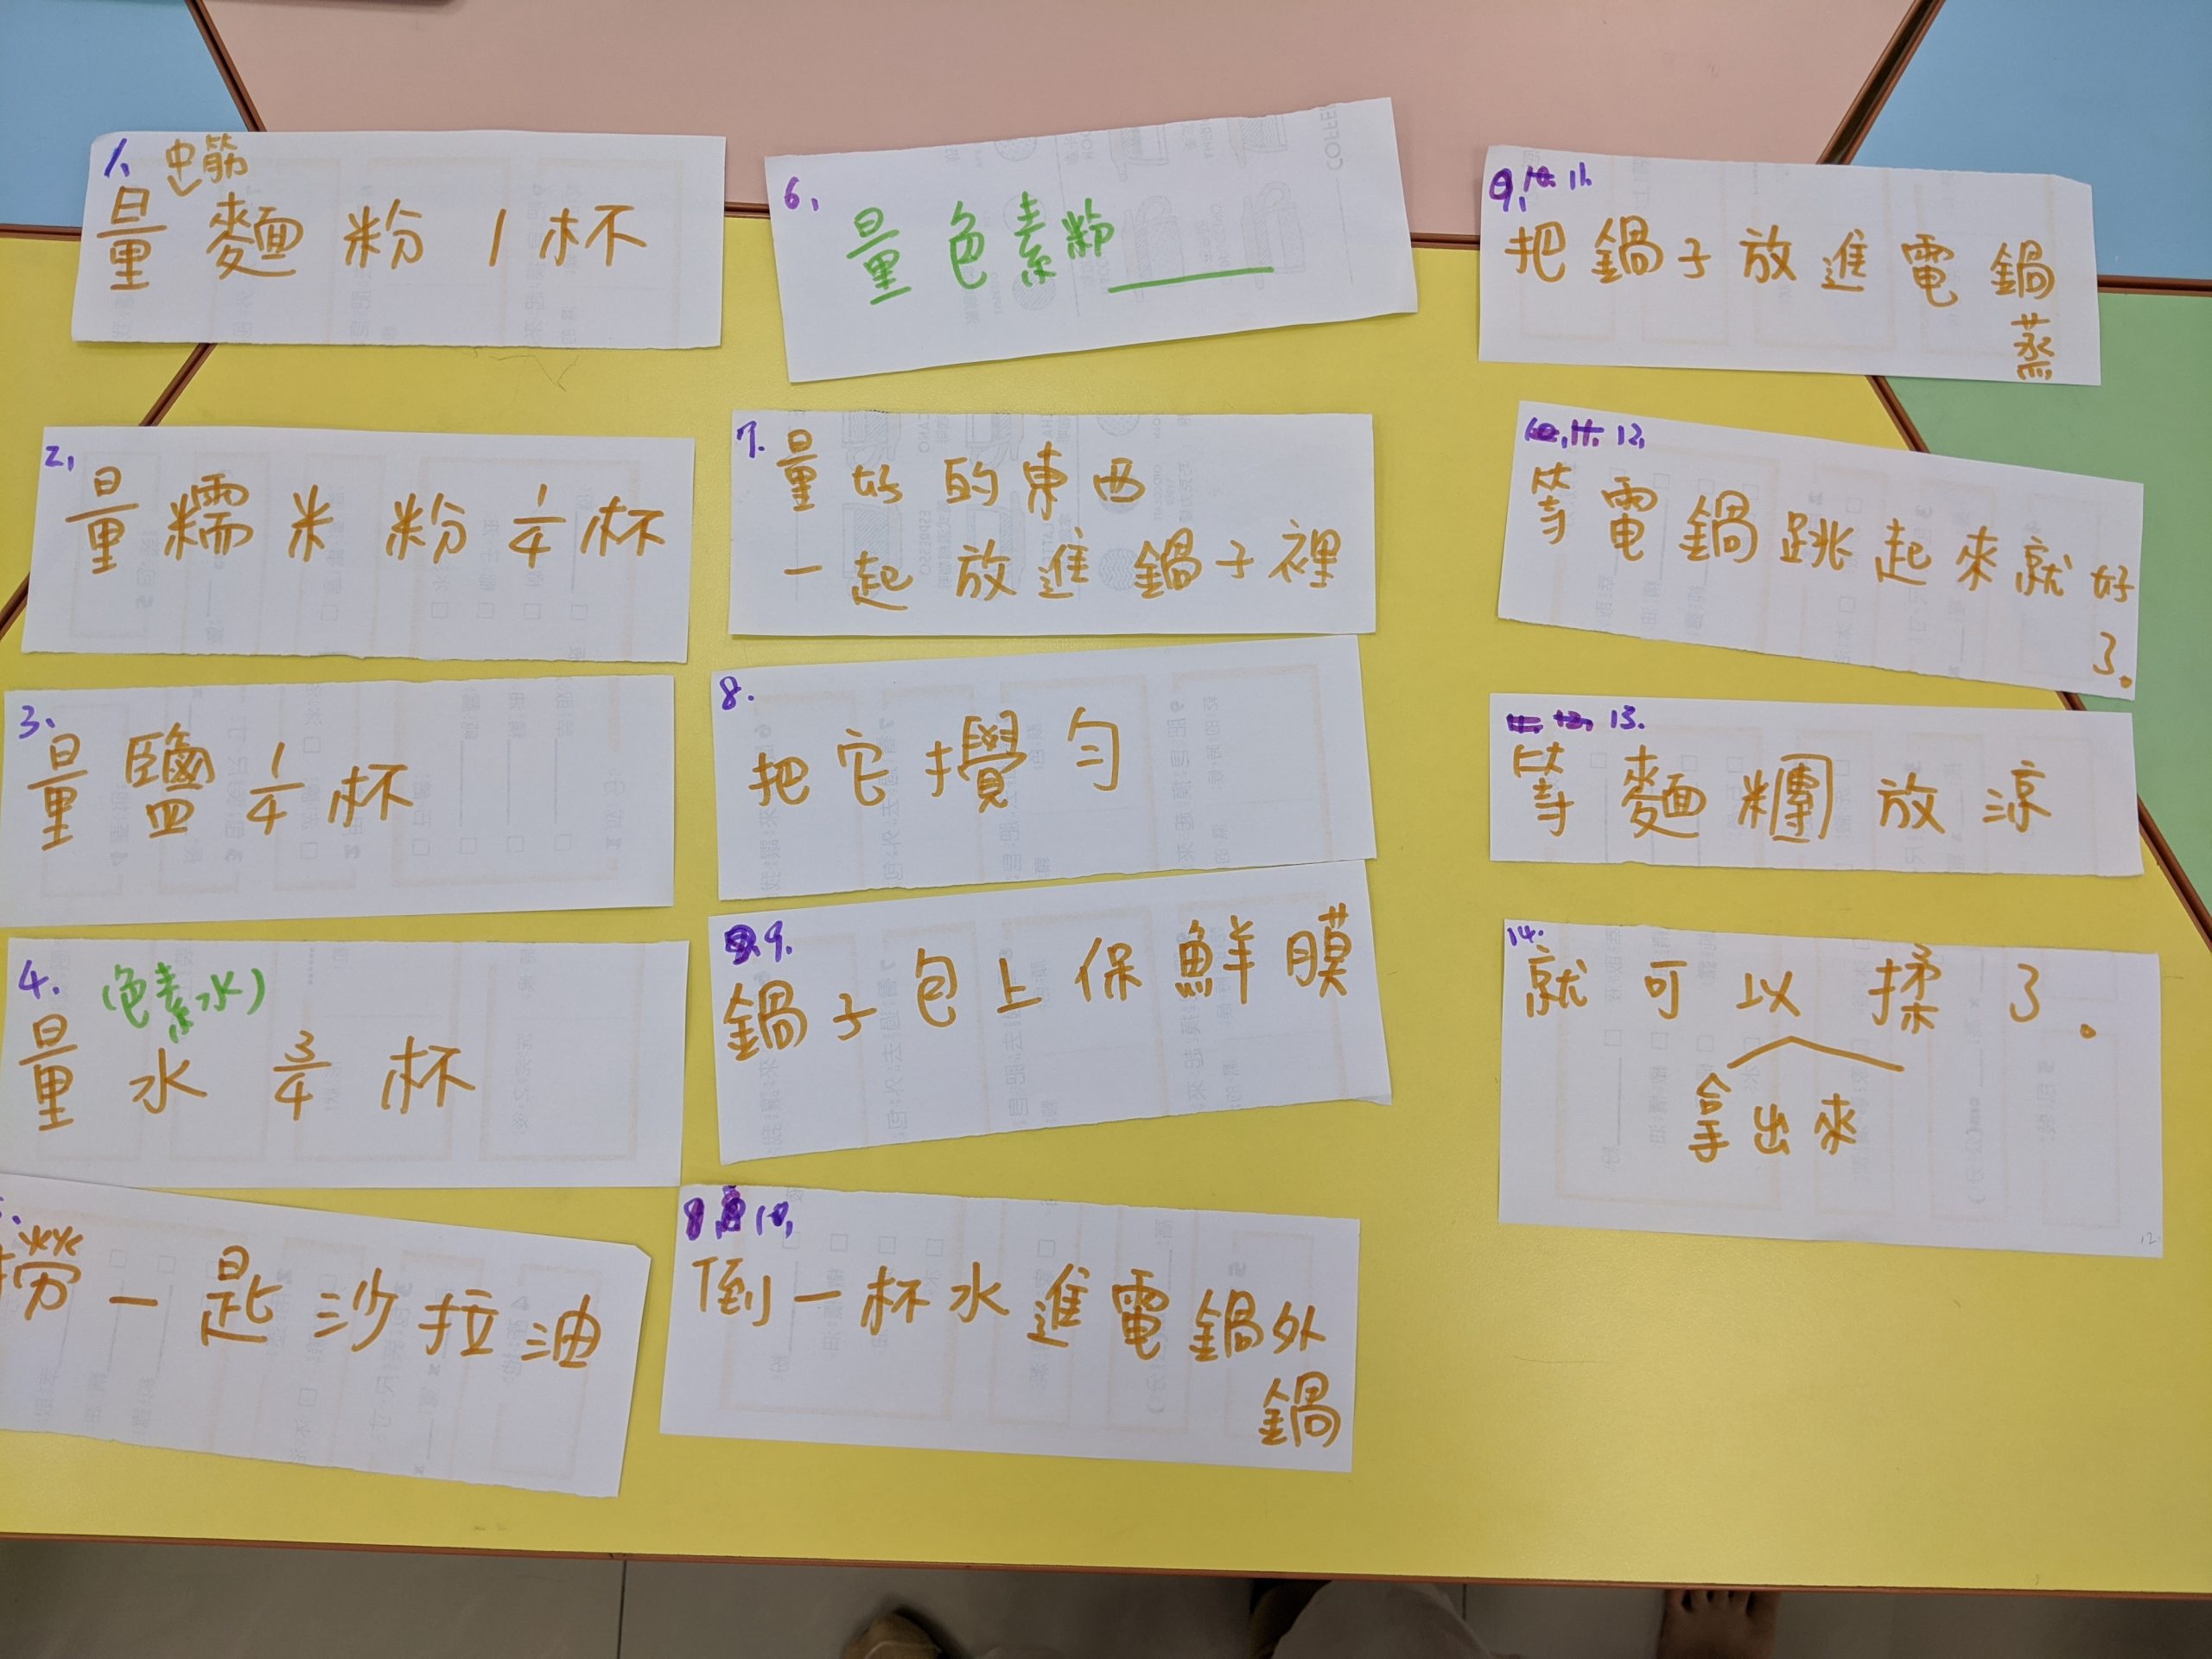 1.
中筋
量麵粉1杯
2.
量糯米粉1/4杯
3.
量鹽1/4杯
4.
(色素水)
量水3/4杯
撈一匙沙拉油
6.
量色素粉____
7.
量好的東西
一起放進鍋子裡
8.
把它攪勻
9.
鍋子包上保鮮膜
10.
倒一杯水進電鍋外
鍋
11.
把鍋子放進電鍋
蒸
12.
等電鍋跳起來就好
了。
13.
等麵糰放涼
14.
就可以揉了。
拿出來